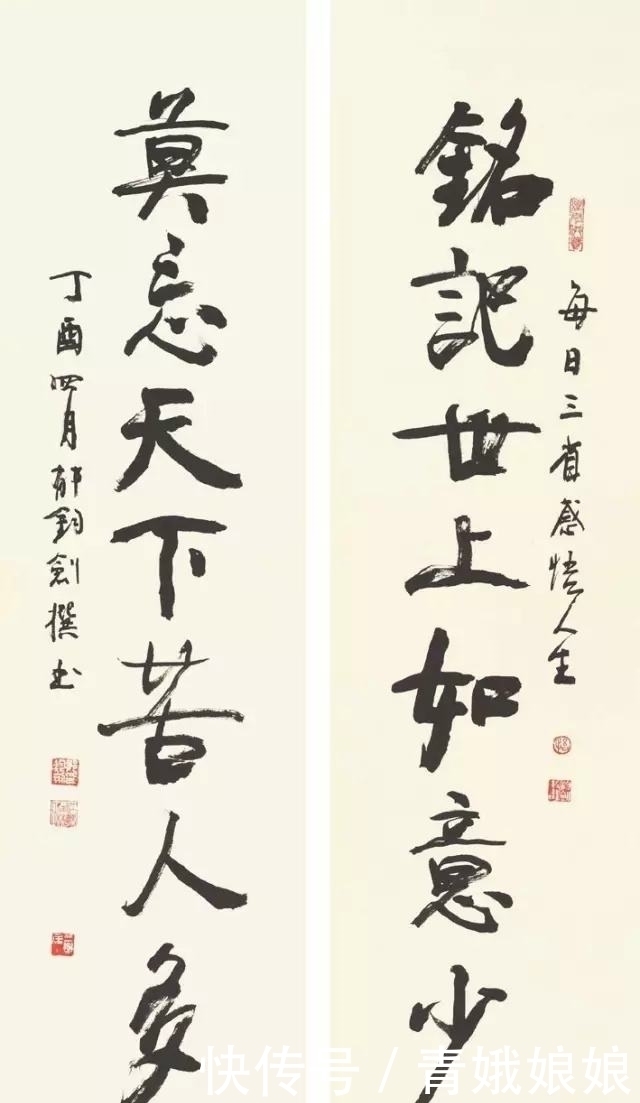 銘記世上如意少
每日三省感悟人生
莫忘天下苦人多
丁酉四月郁钧劍撰书
快传号/青娥娘娘